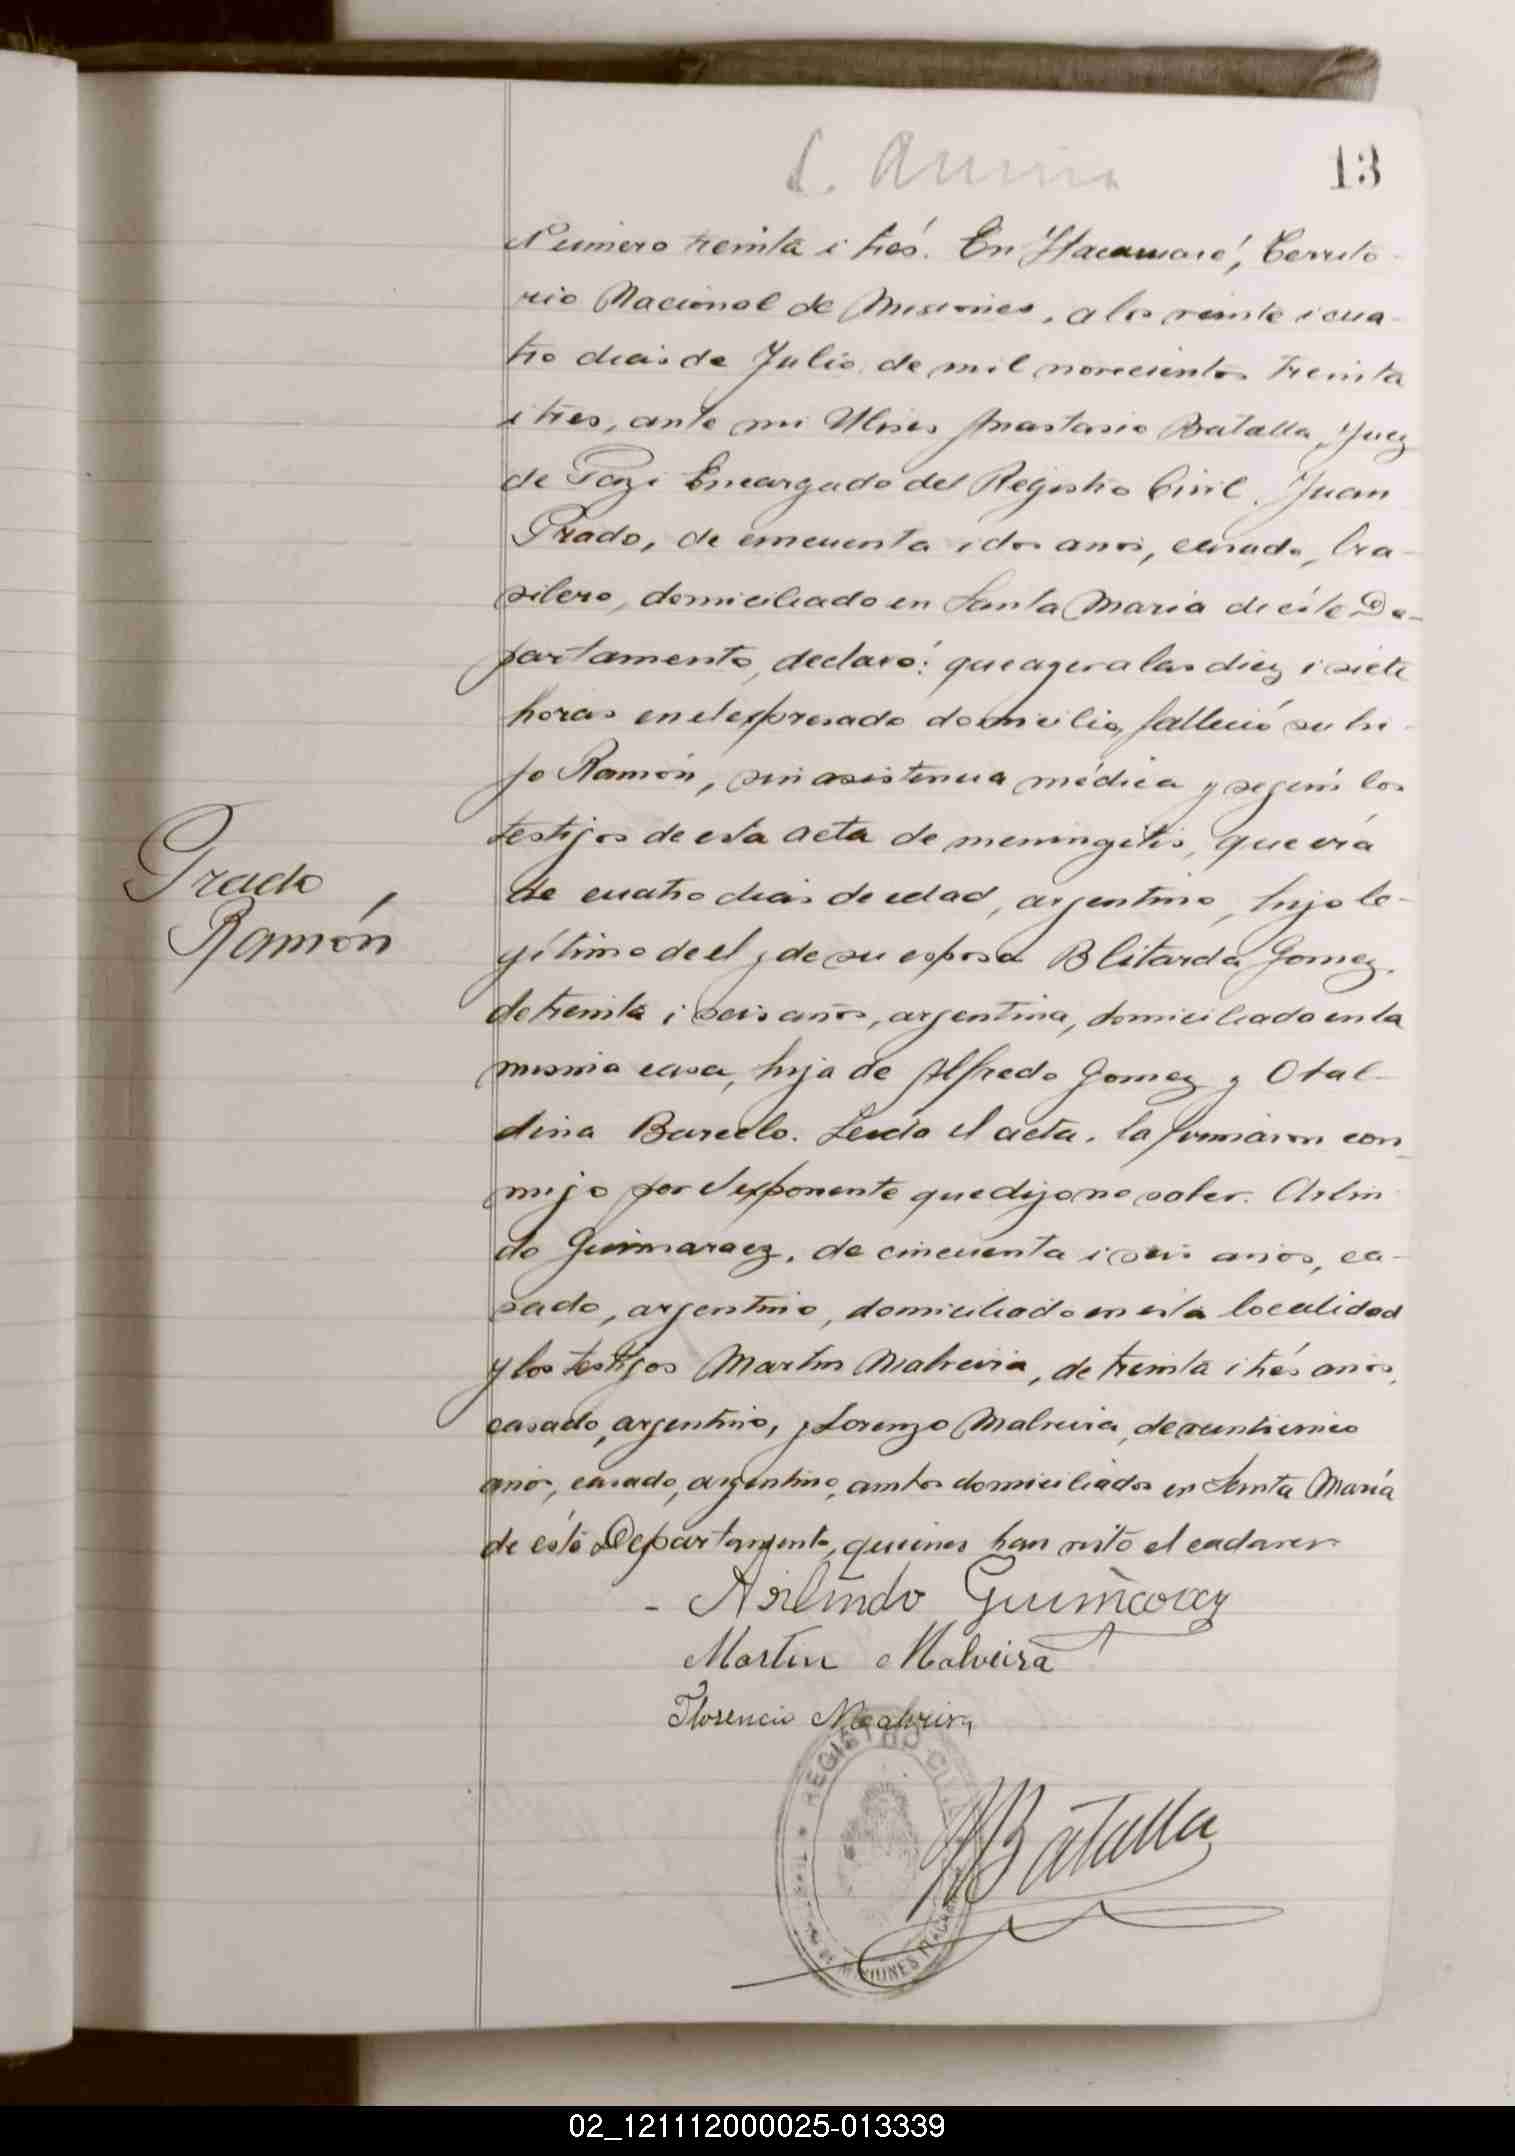 13
Número treinta i trés. En Itacaruaré, Territo-
rio Nacional de Misiones, a los veinte i cua-
tro dias de Julio de mil novecientos treinta
i tres, ante mi Ulises Anastasio Batalla, Juez
de Paz i Encargado del Registro Civil, Juan
Prado, de cincuenta i dos años, casado, bra-
silero, domiciliado en Santa Maria de éste De-
partamento, declaró: que ayer a las diez i siete
horas en el expresado domicilio, falleció su hi-
jo Ramón, sin asistencia médica y según los
testigos de esta acta de meningitis, que era
de cuatro dias de edad, argentino, hijo le-
Prado,
Ramón
gítimo de el y de su esposa Blitarda Gomez,
de treinta i seis años, argentina, domiciliado en la
misma casa, hija de Alfredo Gomez y Otal-
dina Barcelo. Leida el acta, la firmaron con-
migo por el exponente que dijo no saber. Arlin
do Guimaraez, de cincuenta i seis años, ca-
sado, argentino, domiciliado en esta localidad
y los testigos Martin Malveira, de treinta i trés años,
casado, argentino, y Lorenzo Malveira, de veinticinco
años, casado, argentino, ambos domiciliados en Santa María
de éste Departamento, quienes han visto el cadaver
- Arlindo Guimaraez
Martin Malveira
Florencio Malveira
REGISTRO CIVIL
MISIONES
Batalla
02_121112000025-013339